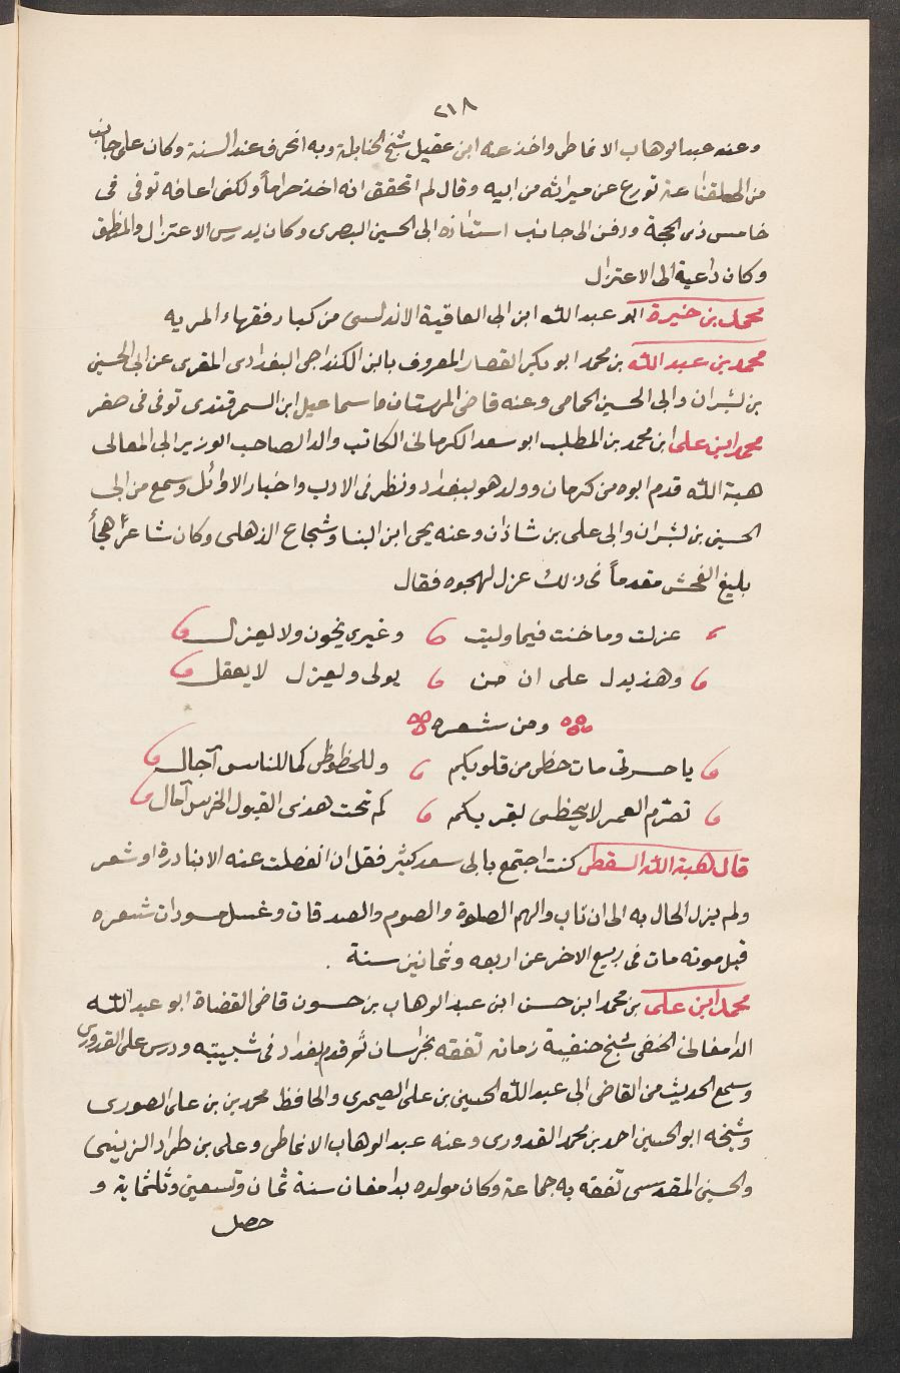 ٢١٨
وعنه عبدالوهاب الانماطى واخذ عنه ابن عقيل شيخ الحنابلة وبه انحرف عند السنة وكان على جانب
من الطلقناعة تورع عن ميراثه من ابيه وقال لم اتحقق انه اخذ حراماً ولكنى اعافه توفى فى
خامس ذى الحجة ودفن الى جانب استاذه ابى الحسين البصرى وكان يدرس الاعتزال والمنطق
وكان داعية الى الاعتزال
محمد بن خيرة ابو عبد الله ابن ابى العاقية الاندلسى من كبار فقهاء المريه
محمد بن عبد الله بن محمد ابو بكر القصار المعروف بابن الكنداجى البغدادى المقرى عن ابى الحسين
بن بشران وابى الحسين الحمامى وعنه قاضى المرستان ماسماعيل ابن السمرقندى توفى فى صفر
محمد ابن على ابن محمد بن المطلب ابو سعد الكرمانى الكاتب والد الصاحب الوزير ابى المعالى
هبة الله قدم ابوه من كرمان وولد هو ببغداد ونظر فى الادب واخبار الاوائل وسمع من ابى
الحسين بن بشران وابى على بن شاذان وعنه يحى ابن البنا وشجاع الذهلى وكان شاعراً هجاً
بليغ الفحش مقدماً فى ذلك عزل لهجوه فقال
عزلت وما خنت فيما وليت وغيرى يخون ولا يعزل
وهذ يدل على ان من يولى ويعزل لا يعقل
ومن شعره
يا حسرتى مات حظى من قلوبكم وللحظوظى كما للناس آجال
تصرم العمر لا يحظى بقربكم كم تحت هذى القبول الخرس آمال
قال هبة الله السقطى كنت اجتمع بابى سعد كثير فقل ان انفصلت عنه الا بنادرة او شعر
ولم يزل الحال به الى ان تاب والهم الصلوة والصوم والصدقات وغسل مسودات شعره
قبل موته مات فى ربيع الاخر عن اربعه وثمانين سنة
محمد ابن على بن محمد ابن حسن ابن عبد الوهاب بن حسون قاضى القضاة ابو عبد الله
الدامغانى الحنفى شيخ حنفية زمانه تفقه بخراسان ثم قدم بغداد فى شبيبته ودرس على القدورى
وسمع الحديث من القاضى ابى عبد الله الحسين بن على الصيمرى والحافظ محمد بن بن على الصورى
وشيخه ابو الحسين احمد بن محمد القدورى وعنه عبد الوهاب الانماطى وعلى بن طراد الزينبى
والحسين المقدسى تفقه به جماعة وكان مولده بدامغان سنة ثمان وتسعين وثلثماية و
حصل